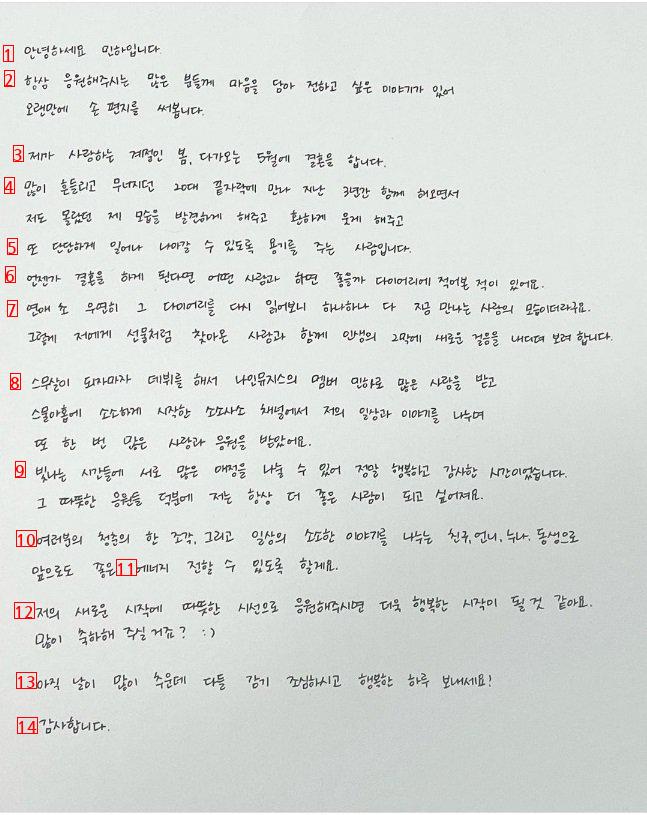 1 안녕하세요 민하입니다.
2 항상 응원해주시는 많은 분들께 마음을 담아 전하고 싶은 이야기가 있어
오랜만에 손 편지를 써봅니다.
3 제가 사랑하는 계절인 봄, 다가오는 5월에 결혼을 합니다.
4 많이 흔들리고 무너지던 20대 끝자락에 만나 지난 3년간 함께 해오면서
저도 몰랐던 제 모습을 발견하게 해주고 환하게 웃게 해주고
5 또 단단하게 일어나 나아갈 수 있도록 용기를 주는 사람입니다.
6 언젠가 결혼을 하게 된다면 어떤 사람과 하면 좋을까 다이어리에 적어본 적이 있어요.
7 연애 초 우연히 그 다이어리를 다시 읽어보니 하나하나 다 지금 만나는 사람의 모습이더라구요.
그렇게 저에게 선물처럼 찾아온 사람과 함께 인생의 2막에 새로운 걸음을 내디뎌 보려 합니다.
8 스무살이 되자마자 데뷔를 해서 나인뮤지스의 멤버 민하로 많은 사랑을 받고
스물아홉에 소소하게 시작한 소소사소 채널에서 저의 일상과 이야기를 나누며
또 한 번 많은 사랑과 응원을 받았어요.
9 빛나는 시간들에 서로 많은 애정을 나눌 수 있어 정말 행복하고 감사한 시간이었습니다.
그 따뜻한 응원들 덕분에 저는 항상 더 좋은 사람이 되고 싶어져요.
10 여러분의 청춘의 한 조각, 그리고 일상의 소소한 이야기를 나누는 친구, 언니, 누나, 동생으로
앞으로도 좋은 11 에너지 전할 수 있도록 할게요.
12 저의 새로운 시작에 따뜻한 시선으로 응원해주시면 더욱 행복한 시작이 될 것 같아요.
많이 축하해 주실거죠? :)
13 아직 날이 많이 추운데 다들 감기 조심하시고 행복한 하루 보내세요!
14 감사합니다.